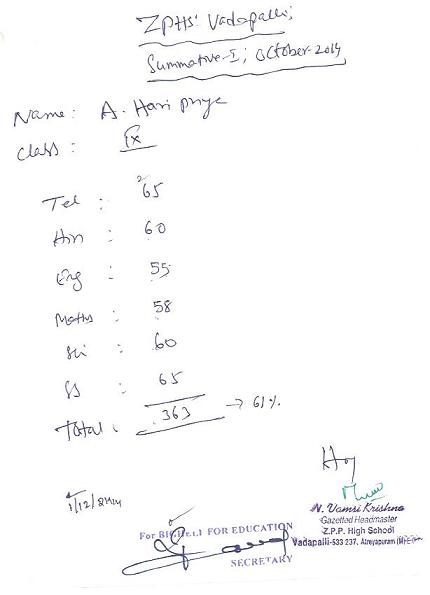 ZPHS: Vadapalli;
Summative-I; October-2014
Name: A. Hari priya
Class: IX
Tel : 65
Hin : 60
Eng : 55
Maths : 58
Sci : 60
SS : 65
Total : 363 → 61%
1/12/2014
N. Vamsi Krishna
Gazetted Headmaster
Z.P.P. High School
Vadapalli-533 237, Atreyapuram (M)
For BIG HELP FOR EDUCATION
SECRETARY